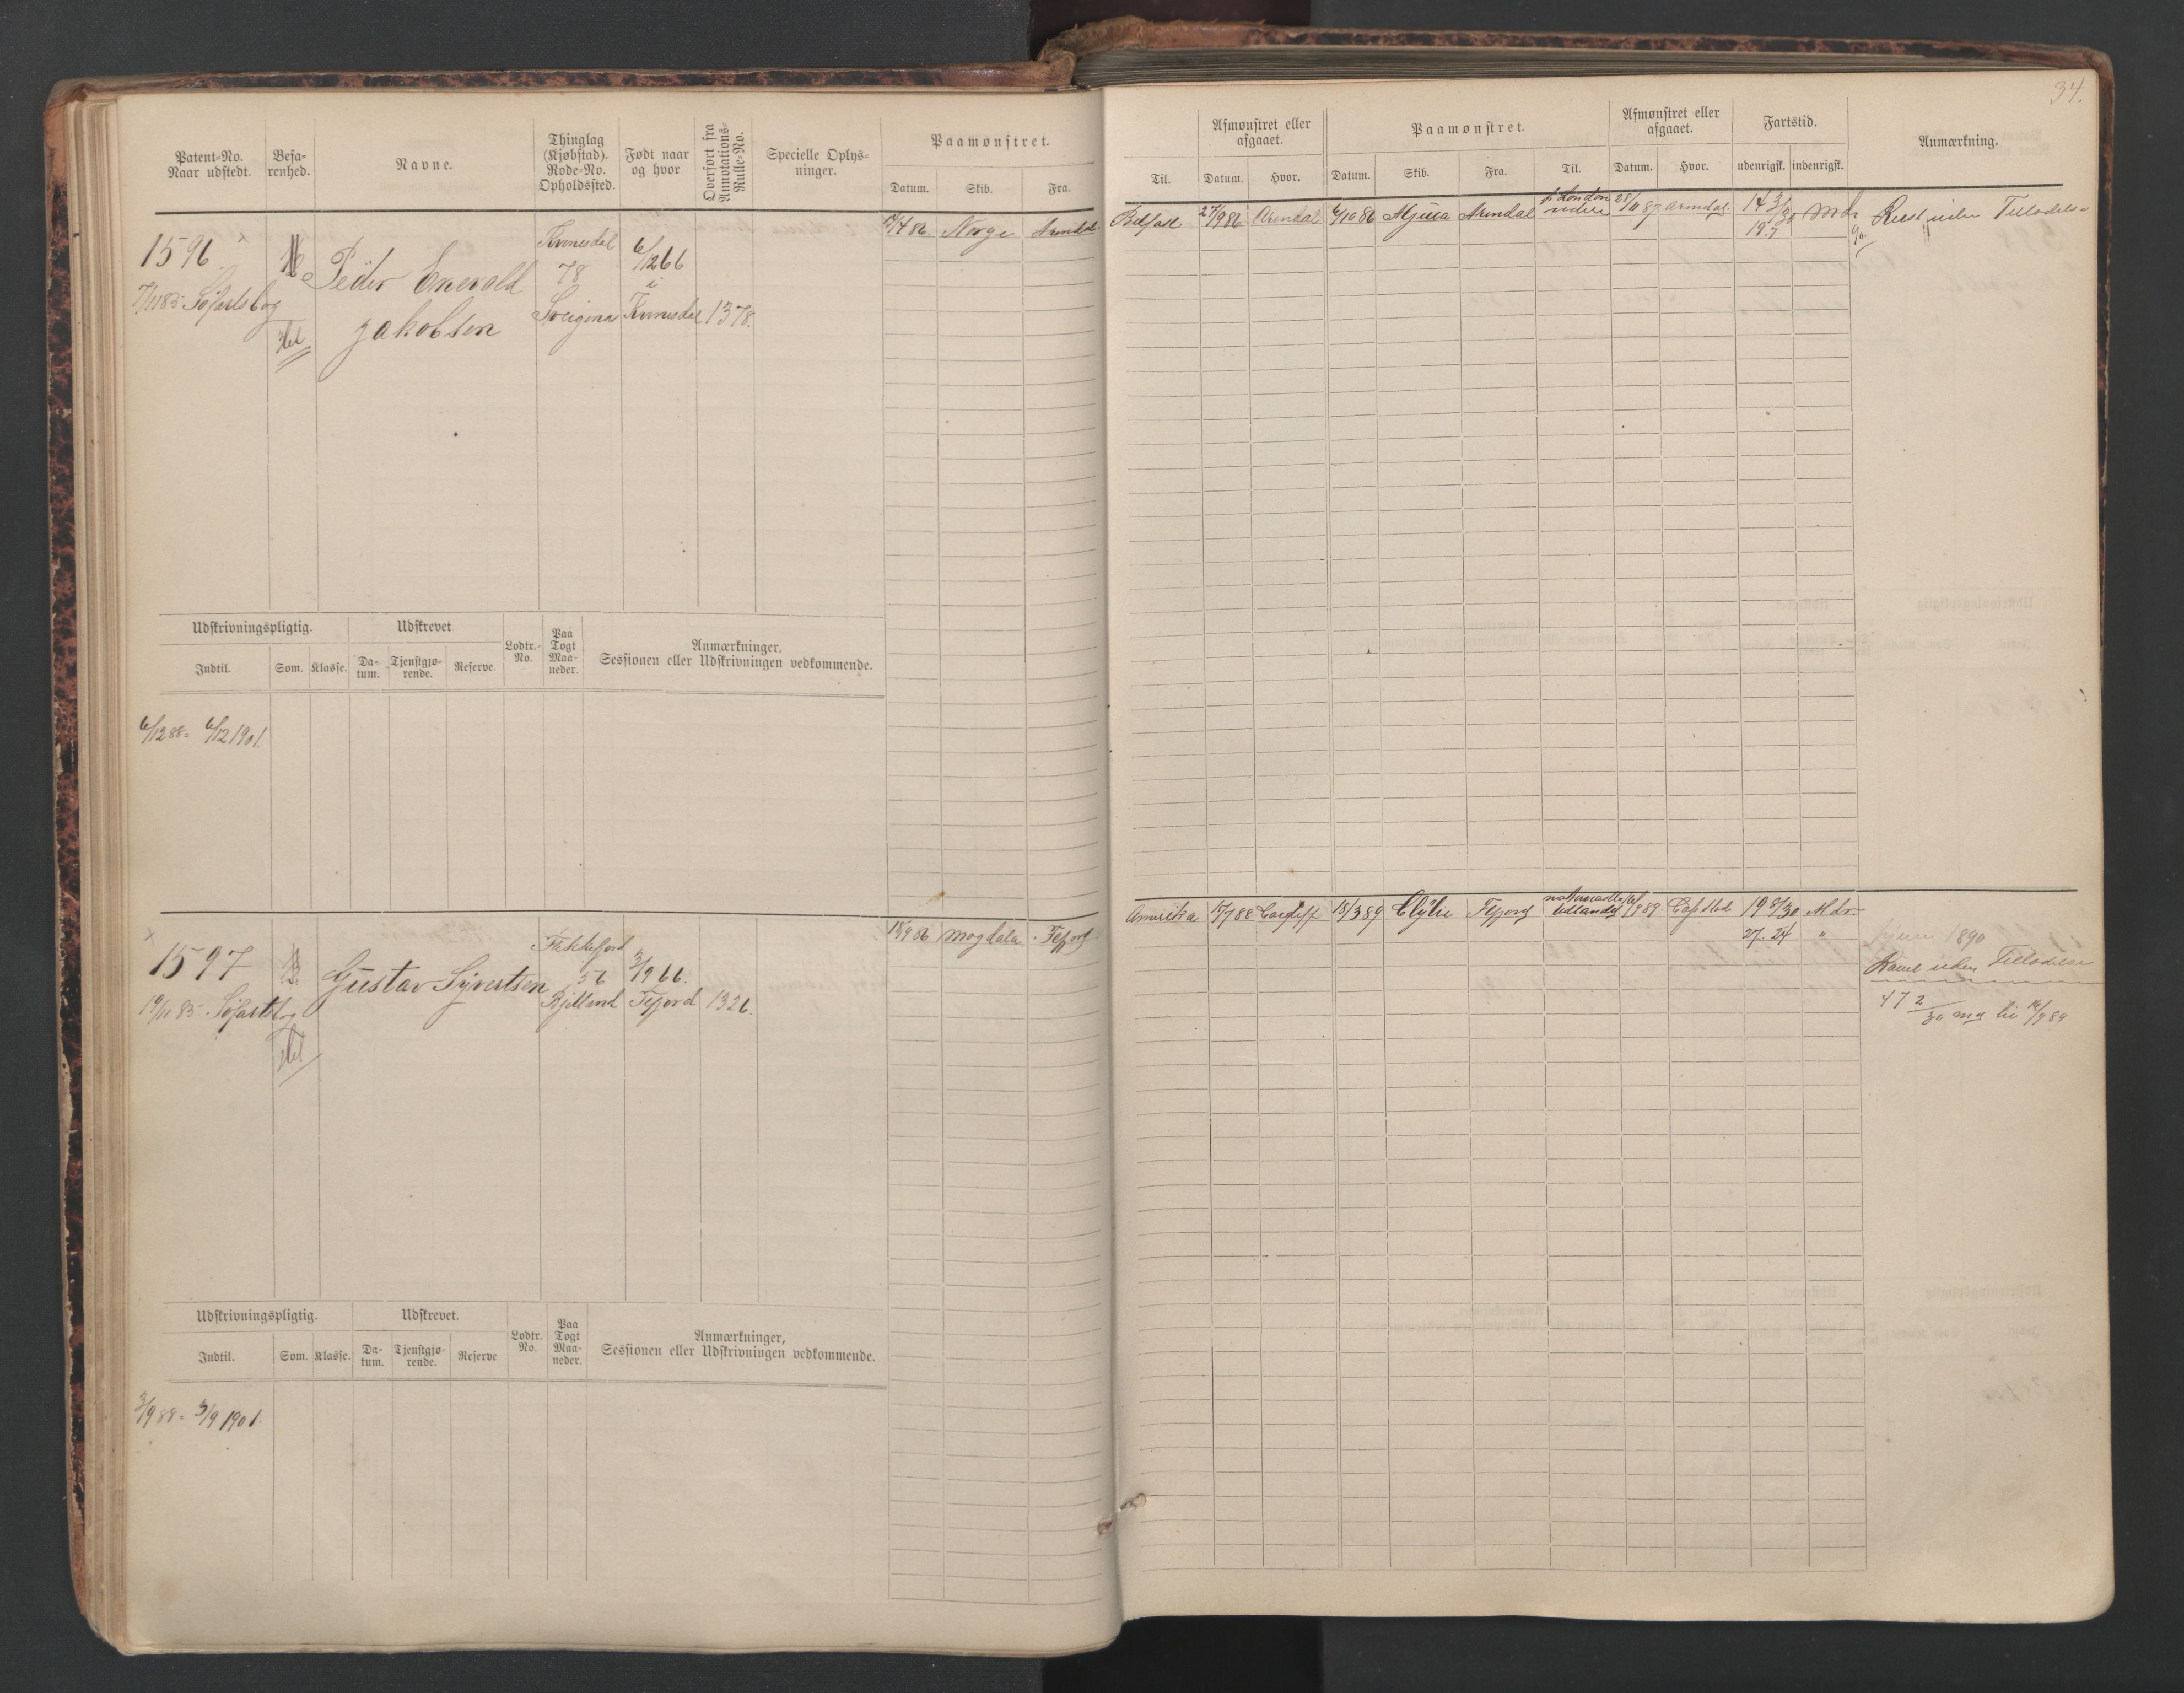 34.
Patent-No. Naar udstedt.
Befa-renhed.
Navne.
Thinglag (Kjøbstad). Rode-No. Opholdssted.
Født naar og hvor
Overført fra Annotations-Rulle-No.
Specielle Oplys-ninger.
Paamønstret.
Datum. Skib. Fra.
Til.
Afmønstret eller afgaaet.
Datum. Hvor.
Paamønstret.
Datum. Skib. Fra. Til.
Afmønstret eller afgaaet.
Datum. Hvor.
Fartstid.
udenrigsk. indenrigsk.
Anmærkning.
1596
7/11 85 Søfartsbog
Peder Enevold
Jakobsen
Kvinesdal
78
6/12 66
i
Kvinesdal
1378.
17/4 86. Norge Arendal
Belfast 27/9 86 Arendal 6/10 86 Arendal London 28/11 87 Arendal 14 3/30 Mdr
19.7
Reist uden Tilladelse
Udskrivningspligtig.
Udskrevet
Lodtr.-No.
Paa Togt Maa-neder.
Anmærkninger,
Sessionen eller Udskrivningen vedkommende.
Indtil. Som. Klasse. Da-tum. Tjenstgjø-rende. Reserve.
6/12 88 = 6/12 1901.
1597
19/11 85 Søfartsbog
Gustav Syvertsen
Flekkefjord
56
3/9 66.
Fefjord
1326.
18/9 86 Magdala Fefjord
Amerika 15/7 88 Cardiff 18/3 89 Clytie Fefjord 9 89 Capstad 19 8/30 Mdr.
27. 24 "
1890
Rømt uden Tilladelse
47 2/30 til 16/9 89
Udskrivningspligtig.
Udskrevet.
Lodtr. No.
Paa Togt Maa-neder.
Anmærkninger,
Sessionen eller Udskrivningen vedkommende.
Indtil. Som. Klasse. Da-tum. Tjenstgjø-rende. Reserve
3/9 88 = 3/9 1901.